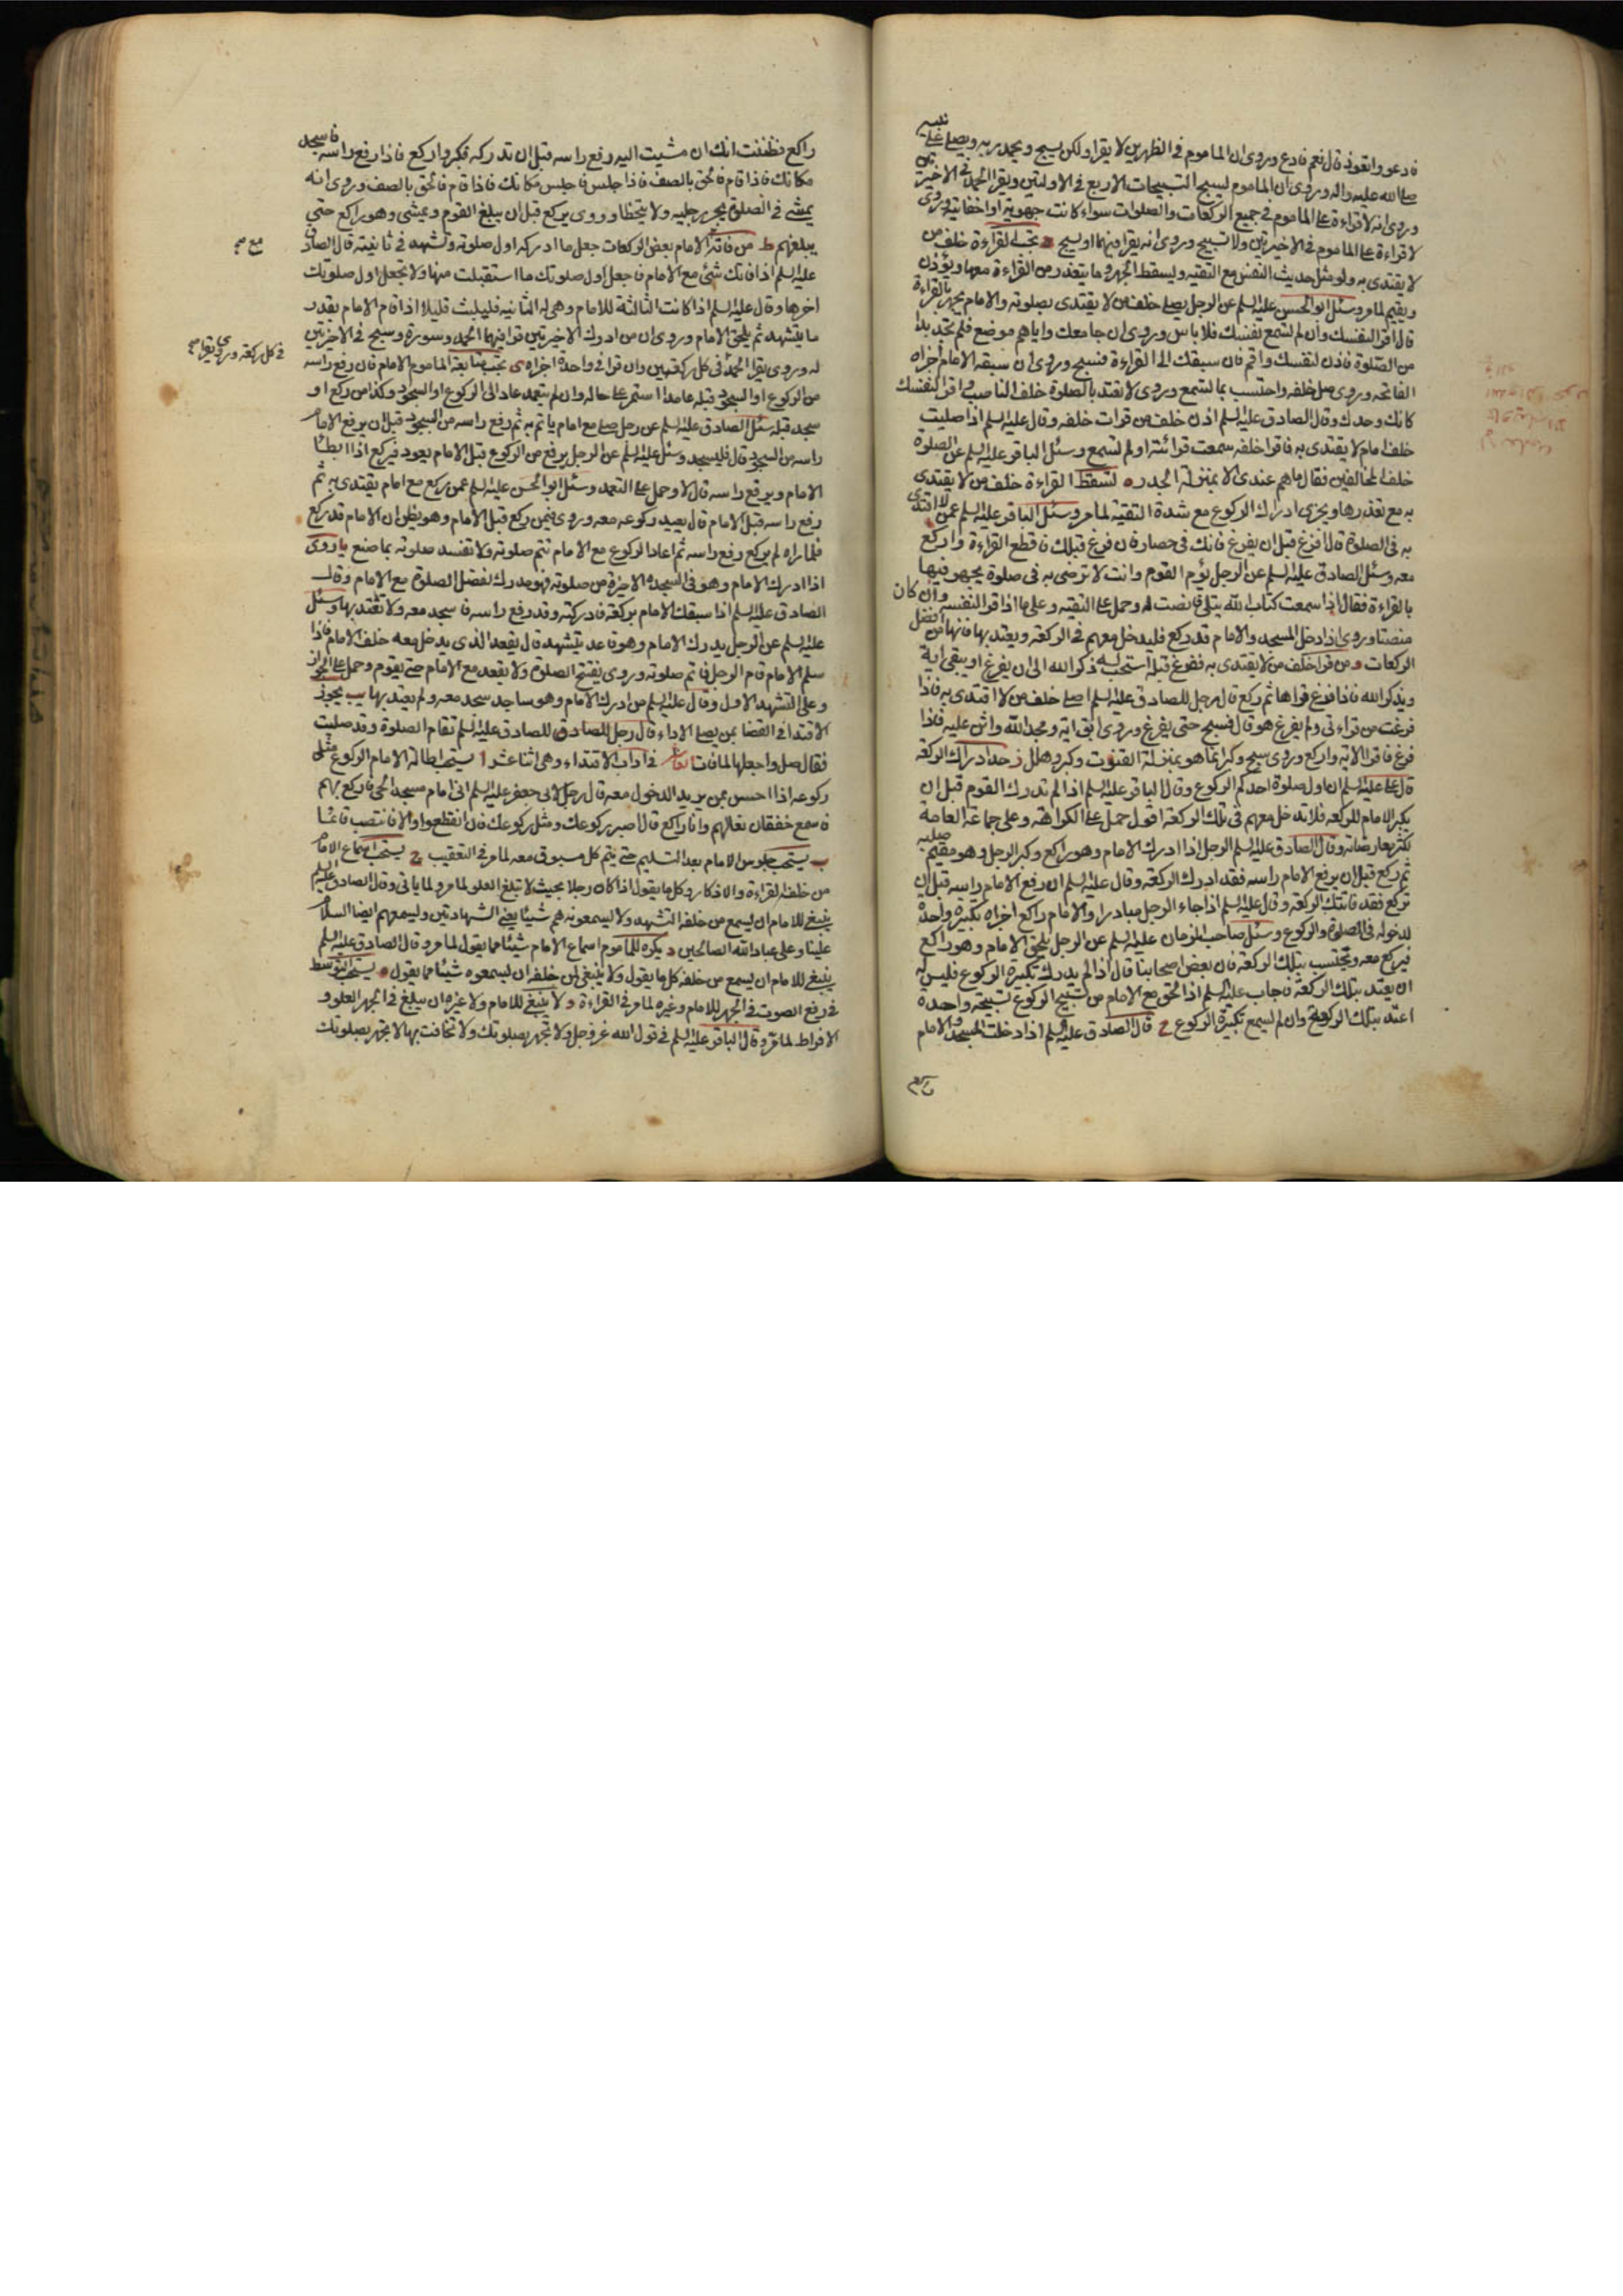 فادعو واتعوذ قال نعم فادع وروى ان الماموم فى الظهرين لا يقرا ولكن يسبح ويحمد ربه ويصلى على نبيه
صلى الله عليه واله وروى ان الماموم يسبح التسبيحات الاربع فى الاولتين ويقرا الحمد فى الاخيرتين
وروى انه لا قراءة على الماموم فى جميع الركعات والصلوات سواء كانت جهرية او اخفاتية وروى
لا قراءة على الماموم فى الاخيرتين ولا تسبيح وروى انه يقرا فيهما او يسبح ه يجب القراءة خلف من
لا يقتدى به ولو مثل حديث النفس مع التقية ويسقط الجهر وما يتعذر من القراءة معها ويؤذن
ويقيم لما مر وسئل ابو الحسن عليه السلم عن الرجل يصلى خلف من لا يقتدى بصلوته والامام يجهر بالقراءة
قال اقرا لنفسك وان لم تسمع نفسك فلا باس وروى ان جامعك واياهم موضع فلم تجد بدا
من الصلوة فاذن لنفسك واقم فان سبقك الى القراءة فسبح وروى ان سبقه الامام اجزاه
الفاتحه وروى صل خلفه واحتسب بما تسمع وروى لا تعتد بالصلوة خلف الناصب واقرا لنفسك
كانك وحدك وقال الصادق عليه السلم اذن خلف من قرات خلفه وقال عليه السلم اذا صليت
خلف امام لا يقتدى به فاقرا خلفه سمعت قرائته او لم تسمع وسئل الباقر عليه السلم عن الصلوة
خلف المخالفين فقال ما هم عندى الا بمنزلة الجدر و تسقط القراءة خلف من لا يقتدى
به مع تعذرها ويجزى ادراك الركوع مع شدة التقية لما مر وسئل الباقر عليه السلم عمن لا اقتدى
به فى الصلوة قال افرغ قبل ان يفرغ فانك فى حصار فان فرغ قبلك فاقطع القراءة واركع
معه وسئل الصادق عليه السلم عن الرجل يؤم القوم وانت لا ترضى به فى صلوة يجهر فيها
بالقراءة فقال اذا سمعت كتاب الله يتلى فانصت له وحمل على التقيه وعلى ما اذا قرا لنفسه وان كان
منصتا وروى اذا دخل المسجد والامام قد ركع فليدخل معهم فى الركعة ويعتد بها فانها من افضل
الركعات ومن قرا خلف من لا يقتدى به ففرغ قبله استحب له ذكر الله الى ان يفرغ او يبقى اية
ويذكر الله فاذا فرغ قراها ثم ركع قال رجل للصادق عليه السلم اصلى خلف من لا اقتدى به فاذا
فرغت من قراءتى ولم يفرغ هو قال فسبح حتى يفرغ وروى ابق اية ومجد الله واثن عليه فاذا
فرغ فاقرا الاية واركع وروى سبح وكبر انما هو بمنزلة القنوت وكبر وهلل ز حد ادراك الركعة
قال على عليه السلم ان اول صلوة احدكم الركوع وقال الباقر عليه السلم اذا لم تدرك القوم قبل ان
يكبر الامام للركعه فلا تدخل معهم فى تلك الركعة اقول حمل على الكراهة وعلى جماعة العامة
لكثرة معارضاته وقال الصادق عليه السلم الرجل اذا ادرك الامام وهو راكع وكبر الرجل وهو مقيم صلبه
ثم ركع قبل ان يرفع الامام راسه فقد ادرك الركعة وقال عليه السلم ان رفع الامام راسه قبل ان
تركع فقد فاتتك الركعة وقال عليه السلم اذا جاء الرجل مبادرا والامام راكع اجزاه تكبيرة واحدة
لدخوله فى الصلوة والركوع وسئل صاحب الزمان عليه السلم عن الرجل يلحق الامام وهو راكع
فيركع معه ويحتسب بتلك الركعة فان بعض اصحابنا قال اذا لم يدرك تكبيرة الركوع فليس له
ان يعتد بتلك الركعة فاجاب عليه السلم اذا لحق مع الامام من تسبيح الركوع تسبيحة واحدة
اعتد بتلك الركعة وان لم يسمع تكبيرة الركوع ح قال الصادق عليه السلم اذا دخلت المسجد والامام
راكع فظننت انك ان مشيت اليه رفع راسه قبل ان تدركه فكبر واركع فاذا رفع راسه فاسجد
مكانك فاذا قام فالحق بالصف فاذا جلس فاجلس مكانك فاذا قام فالحق بالصف وروى انه
يمشى فى الصلوة يجر رجليه ولا يتخطا وروى يركع قبل ان يبلغ القوم ويمشى وهو راكع حتى
يبلغهم ط من فاته مع الامام بعض الركعات جعل ما ادركه اول صلوته وتشهد فى ثانيته قال الصادق
مع صح
عليه السلم اذا فاتك شئ مع الامام فاجعل اول صلوتك ما استقبلت منها ولا تجعل اول صلوتك
اخرها وقال عليه السلم اذا كانت الثالثة للامام وهى له الثانيه فليلبث قليلا اذا قام الامام بقدر
ما يتشهد ثم يلحق الامام وروى ان من ادرك الاخيرتين قرا فيهما الحمد وسورة وسبح فى الاخيرتين
له وروى يقرا الحمد فى كل ركعتين وان قرا فى واحدة اجزاه ى يجب متابعة الماموم الامام فان رفع راسه
فى كل ركعة وروى يقرا صح
من الركوع او السجود قبله عامدا استمر على حاله وان لم يتعمد عاد الى الركوع او السجود وكذا من ركع او
سجد قبله سئل الصادق عليه السلم عن رجل صلى مع امام ياتم به ثم رفع راسه من السجود قبل ان يرفع الامام
راسه من السجود قال فليسجد وسئل عليه السلم عن الرجل يرفع من الركوع قبل الامام يعود فيركع اذا ابطا
الامام ويرفع راسه قال لا وحمل على التعمد وسئل ابو الحسن عليه السلم عمن يركع مع امام يقتدى به ثم
رفع راسه قبل الامام قال يعيد ركوعه معه وروى فيمن ركع قبل الامام وهو يظن ان الامام قد ركع
فلما راه لم يركع رفع راسه ثم اعاد الركوع مع الامام تتم صلوته ولا تفسد صلوته بما صنع يا روى
اذا ادرك الامام وهو فى السجدة الاخيرة من صلوته فهو مدرك لفضل الصلوة مع الامام وقال
الصادق عليه السلم اذا سبقك الامام بركعة فادركته وقد رفع راسه فاسجد معه ولا تعتد بها وسئل
عليه السلم عن الرجل يدرك الامام وهو قاعد يتشهد قال يقعد الذى يدخل معه خلف الامام فاذا
سلم الامام قام الرجل فاتم صلوته وروى يفتتح الصلوة ولا يقعد مع الامام حتى يقوم وحمل على الجواز
وعلى التشهد الاول وقال عليه السلم من ادرك الامام وهو ساجد سجد معه ولم يعتد بها يب يجوز
الاقتدا فى القضا بمن يصلى الاداء قال رجل للصادق للصادق عليه السلم تقام الصلوة وقد صليت
فقال صل واجعلها لما فات فى اداب الاقتداء وهى اثنا عشر ا يستحب اطالة الامام الركوع مثلى
ركوعه اذا احس بمن يريد الدخول معه قال رجل لابى جعفر عليه السلم انى امام مسجد الحى فاركع بهم
فاسمع خفقان نعالهم وانا راكع قال اصبر ركوعك ومثل ركوعك فان انقطعوا والا فانتصب قائما
ب يستحب جلوس الامام بعد التسليم حتى يتم كل مسبوق معه لما مر فى التعقيب ج يستحب اسماع الامام
من خلفه القراءة والاذكار وكل ما يقول اذا كان رجلا بحيث لا تبلغ العلو لما مر ولما ياتى وقال الصادق عليه السلم
ينبغى للامام ان يسمع من خلفه التشهد ولا يسمعونه هم شيئا يعنى الشهادتين ويسمعهم ايضا السلام
علينا وعلى عباد الله الصالحين د يكره للماموم اسماع الامام شيئا مما يقول لما مر وقال الصادق عليه السلم
ينبغى للامام ان يسمع من خلفه كل ما يقول ولا ينبغى لمن خلفه ان يسمعوه شيئا مما يقول ه يستحب التوسط
فى رفع الصوت فى الجهر للامام وغيره لما مر فى القراءة و لا ينبغى للامام ولا غيره ان يبلغ فى الجهر العلو و
الافراط لما مر وقال الباقر عليه السلم فى قول الله عز وجل ولا تجهر بصلوتك ولا تخافت بها لا تجهر بصلوتك